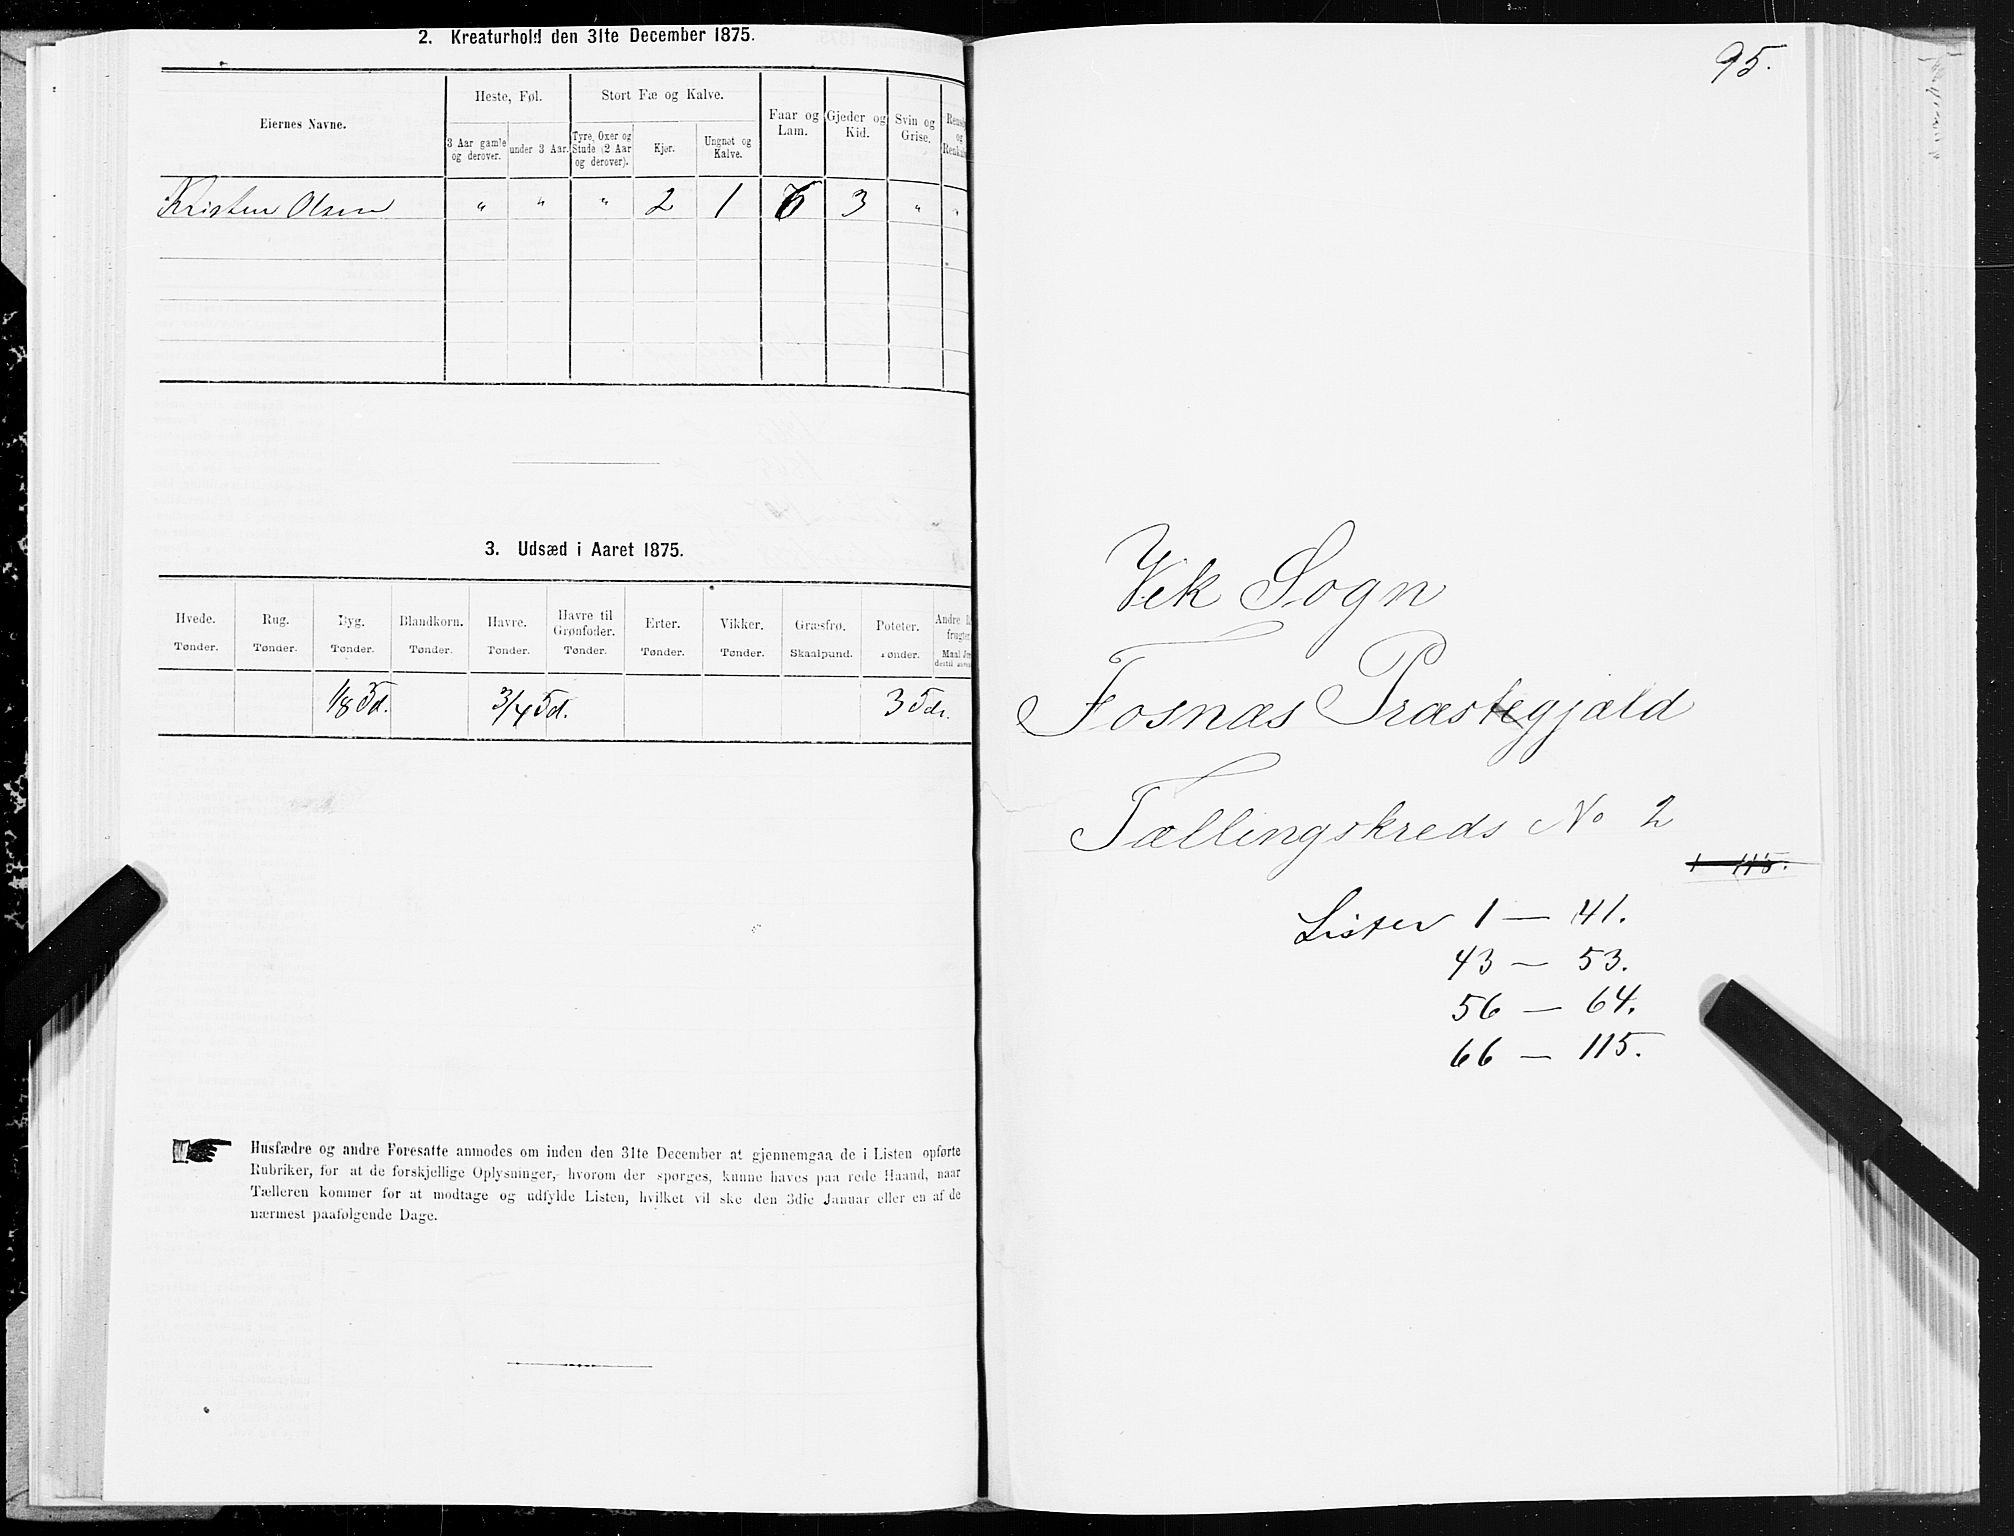 2. Kreaturhold den 31te December 1875.
Eiernes Navne.
Heste, Føl.
Stort Fæ og Kalve.
Faar og Lam.
Gjeder og Kid.
Svin og Grise.
3 Aar gamle og derover.
under 3 Aar.
Tyre, Oxer og Stude (2 Aar og derover).
Kjør.
Ungnøt og Kalve.
Kristen Olsen " " " 2 1 6 3 " "
3. Udsæd i Aaret 1875.
Hvede. Rug. Byg. Blandkorn. Havre. Havre til Grønfoder. Erter. Vikker. Græsfrø. Poteter. Andre
Tønder. Tønder. Tønder. Tønder. Tønder. Tønder. Tønder. Tønder. Skaalpund. Tønder. Maal
1/8 Td. 3/4 Td. 3 Tdr.
Husfædre og andre Foresatte anmodes om inden den 31te December at gjennemgaa de i Listen opførte
Rubriker, for at de forskjellige Oplysninger, hvorom der spørges, kunne haves paa rede Haand, naar
Tælleren kommer for at modtage og udfylde Listen, hvilket vil ske den 3die Januar eller en af de
nærmest paafølgende Dage.
95.
Vek Sogn
Fosnæs Præstegjæld
Tællingskreds No 2
1 115.
Lister 1 — 41.
43 — 53.
56 — 64.
66 — 115.